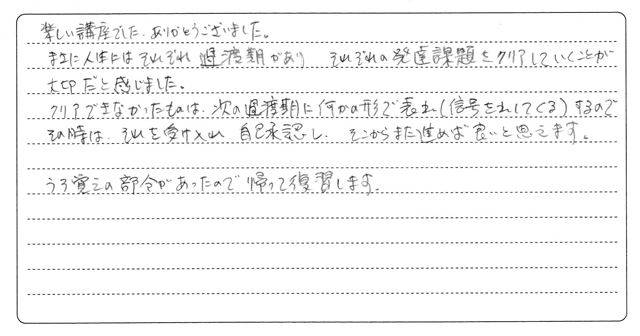 楽しい講座でした。ありがとうございました。
まさに人生にはそれぞれ過渡期があり それぞれの発達課題をクリアしていくことが
大切だと感じました。
クリアできなかったものは、次の過渡期に何かの形で表れ(信号をだしてくる)するので
その時は、それを受け入れ 自己承認し、そこからまた進めば良いと思えます。
うろ覚えの部分があったので帰って復習します。